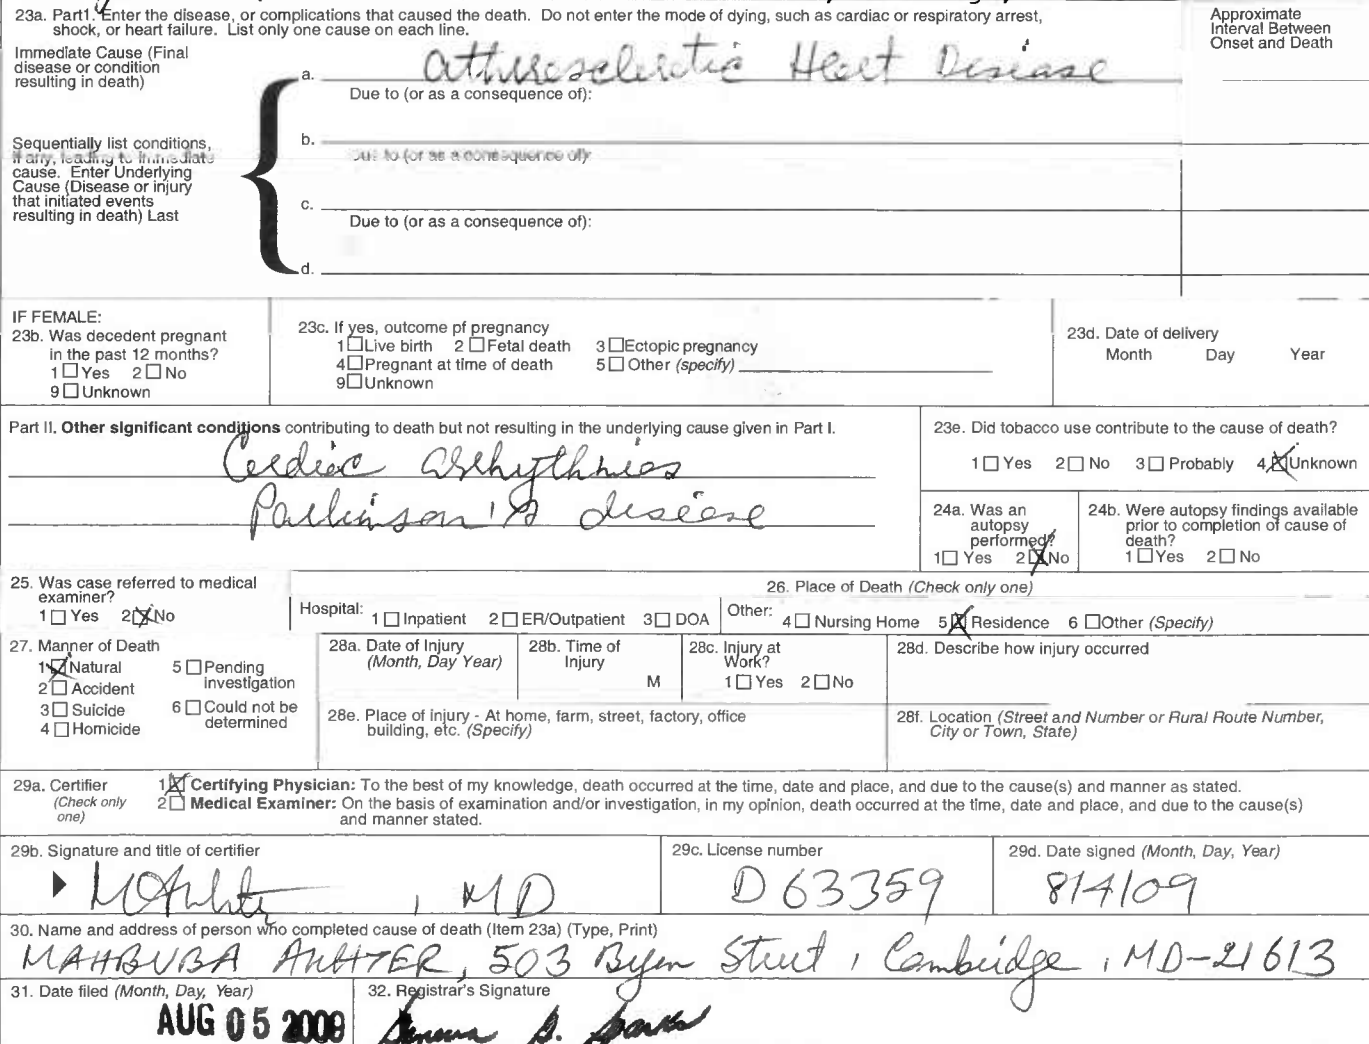 23a. Part1. Enter the disease, or complications that caused the death. Do not enter the mode of dying, such as cardiac or respiratory arrest,
shock, or heart failure. List only one cause on each line.
Approximate
Interval Between
Onset and Death
Immediate Cause (Final
disease or condition
resulting in death)
a. atheresclerotic Heart Disease
Due to (or as a consequence of):
Sequentially list conditions,
if any, leading to immediate
cause. Enter Underlying
Cause (Disease or injury
that initiated events
resulting in death) Last
b.
Due to (or as a consequence of):
c.
Due to (or as a consequence of):
d.
IF FEMALE:
23b. Was decedent pregnant
in the past 12 months?
1 Yes 2 No
9 Unknown
23c. If yes, outcome pf pregnancy
1 Live birth 2 Fetal death 3 Ectopic pregnancy
4 Pregnant at time of death 5 Other (specify)
9 Unknown
23d. Date of delivery
Month Day Year
Part II. Other significant conditions contributing to death but not resulting in the underlying cause given in Part I.
Cardiac arrhythmias
Parkinson's disease
23e. Did tobacco use contribute to the cause of death?
1 Yes 2 No 3 Probably 4 Unknown
24a. Was an
autopsy
performed?
1 Yes 2 No
24b. Were autopsy findings available
prior to completion of cause of
death?
1 Yes 2 No
25. Was case referred to medical
examiner?
1 Yes 2 No
26. Place of Death (Check only one)
Hospital: 1 Inpatient 2 ER/Outpatient 3 DOA Other: 4 Nursing Home 5 Residence 6 Other (Specify)
27. Manner of Death
1 Natural 5 Pending
investigation
2 Accident
3 Suicide 6 Could not be
determined
4 Homicide
28a. Date of Injury
(Month, Day Year)
28b. Time of
Injury
M
28c. Injury at
Work?
1 Yes 2 No
28d. Describe how injury occurred
28e. Place of injury - At home, farm, street, factory, office
building, etc. (Specify)
28f. Location (Street and Number or Rural Route Number,
City or Town, State)
29a. Certifier
(Check only
one)
1 Certifying Physician: To the best of my knowledge, death occurred at the time, date and place, and due to the cause(s) and manner as stated.
2 Medical Examiner: On the basis of examination and/or investigation, in my opinion, death occurred at the time, date and place, and due to the cause(s)
and manner stated.
29b. Signature and title of certifier
, MD
29c. License number
D 63359
29d. Date signed (Month, Day, Year)
8/4/09
30. Name and address of person who completed cause of death (Item 23a) (Type, Print)
MAHBUBA AKHTER, 503 Byrn Street, Cambridge, MD-21613
31. Date filed (Month, Day, Year)
AUG 05 2009
32. Registrar's Signature